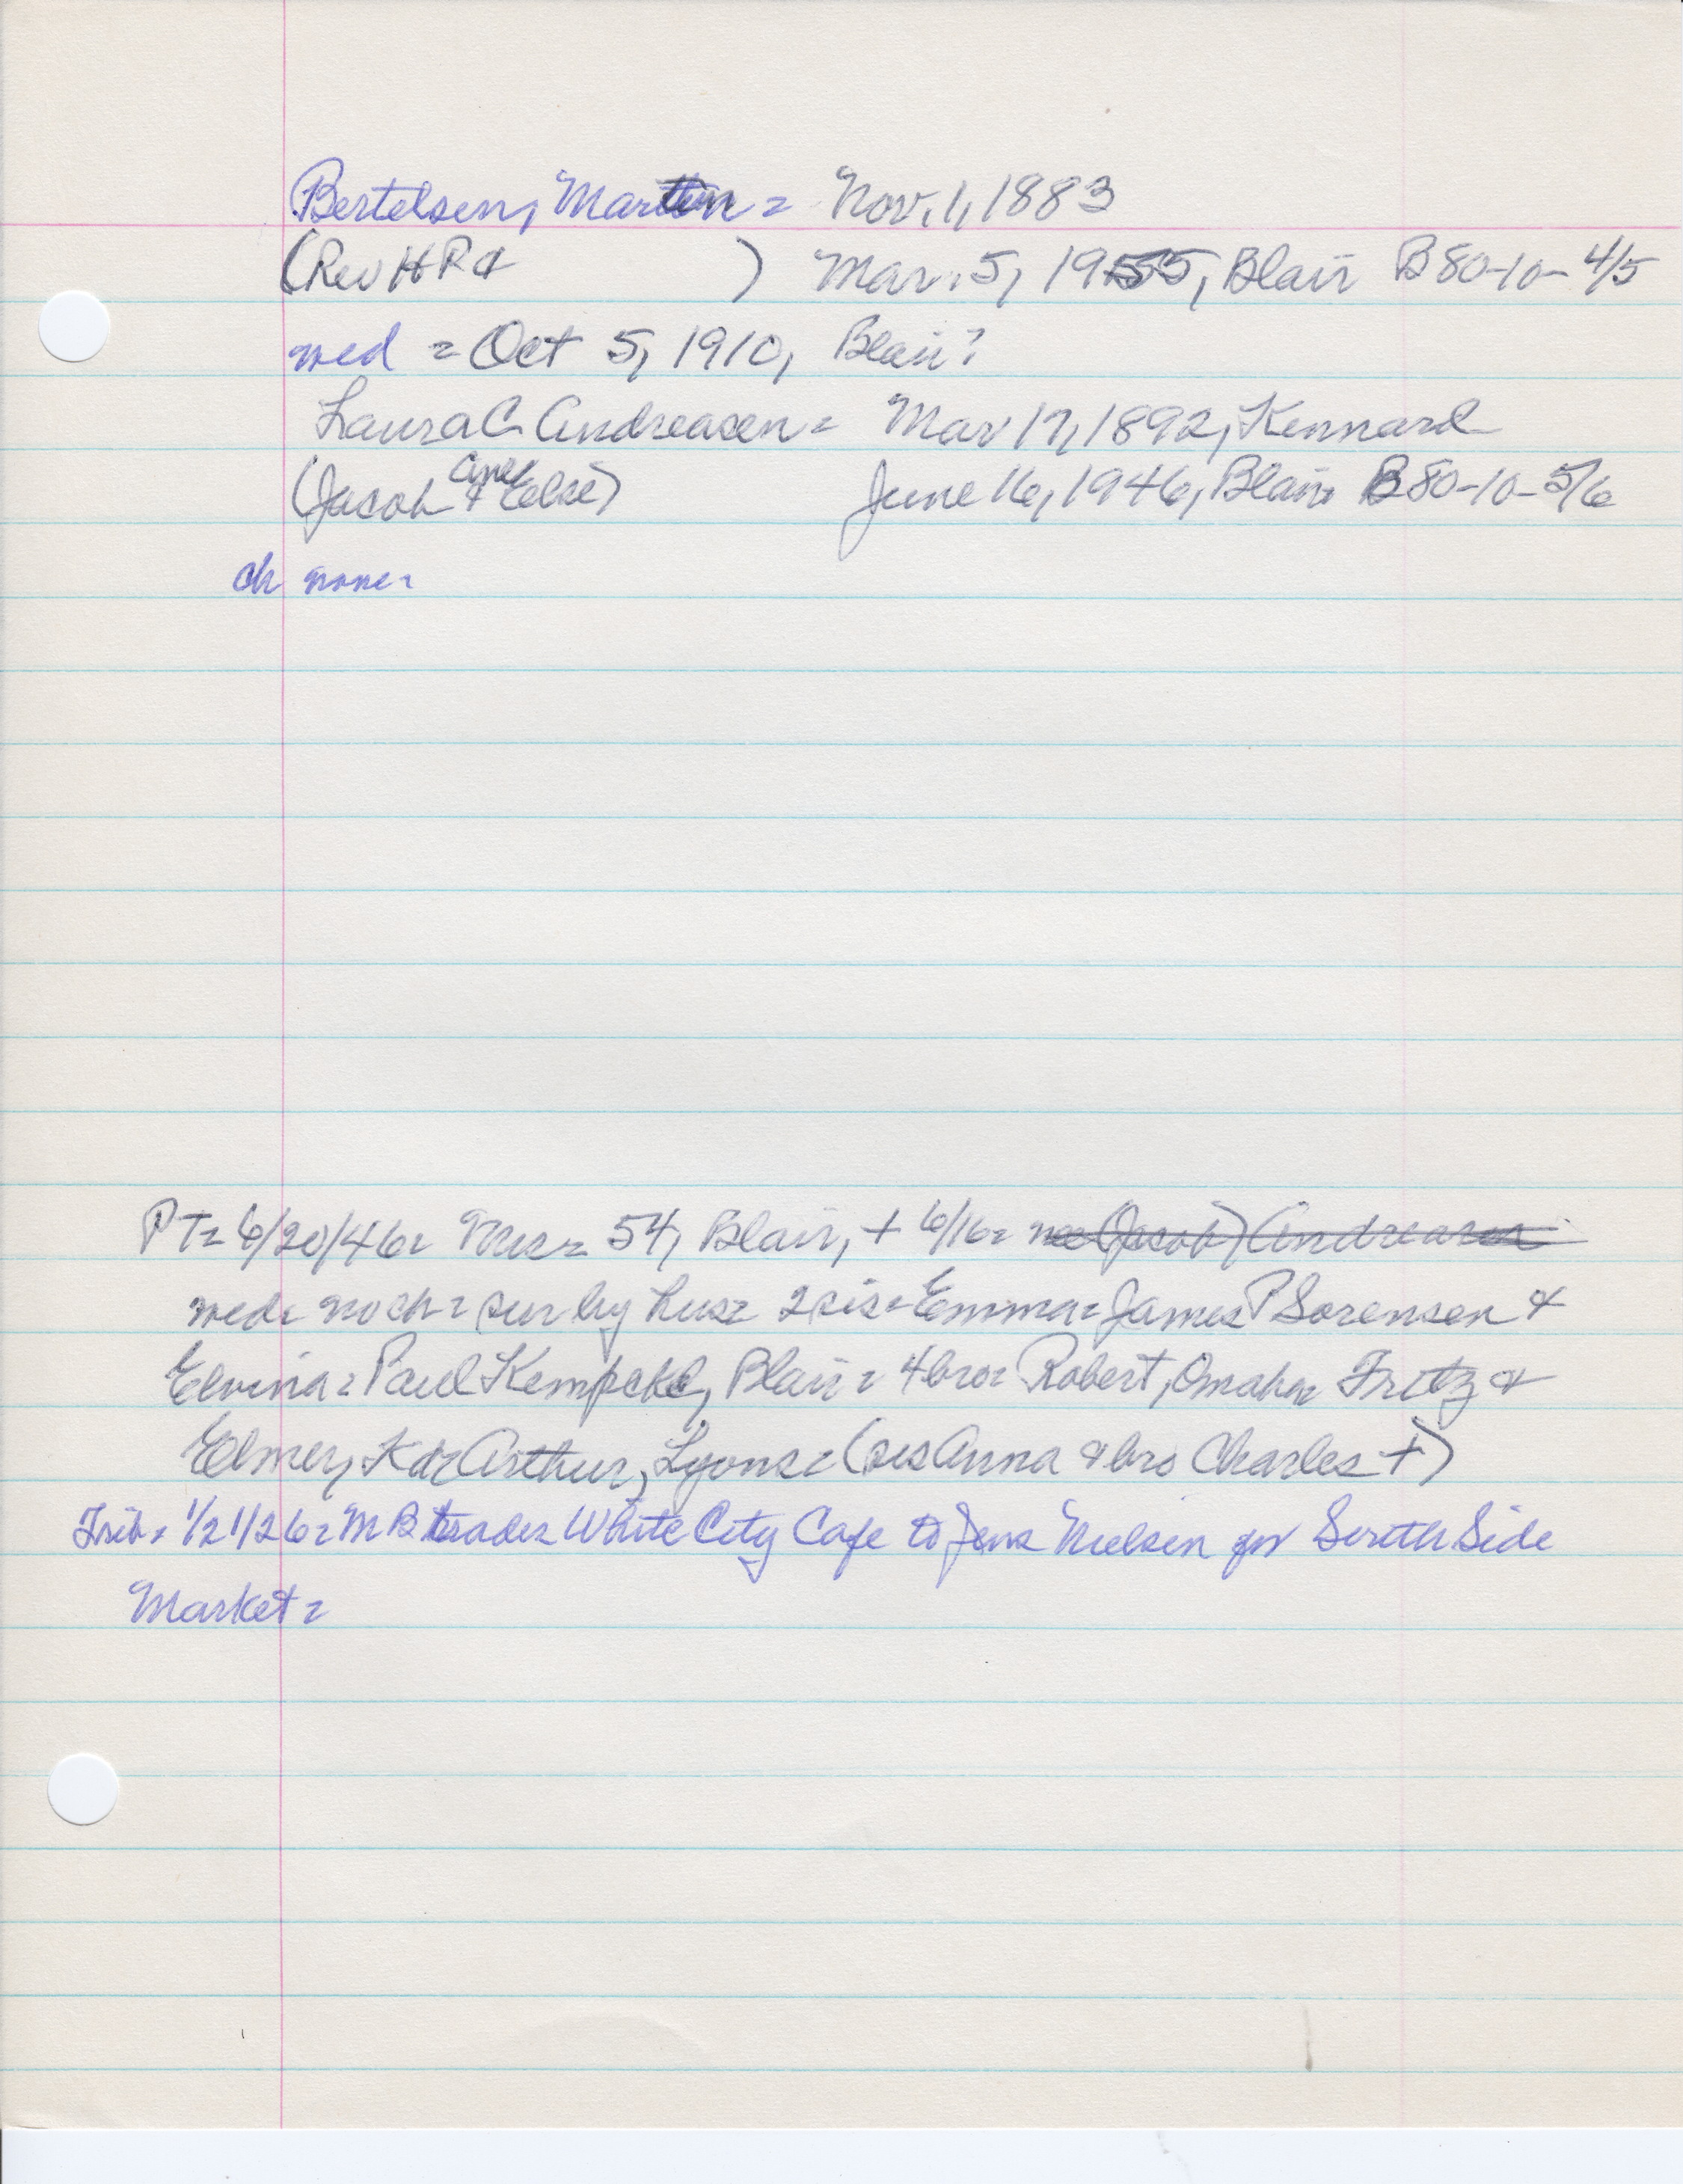 Bertelsen, Martin = Nov. 1, 1883
(Rev H P & ) Mar. 5, 1955, Blair B 80-10-4/5
wed = Oct 5, 1910, Blair?
Laura C Andreasen = Mar 17, 1892, Kennard
(Jacob & Else) June 16, 1946, Blair B 80-10-5/6
ch none =
PT = 6/20/46 = Mrs = 54, Blair, + 6/16 = nee (Jacob) Andreasen
wed = no ch = sur by hus = 2 sis = Emma = James P Sorensen &
Elvina = Paul Kempcke, Blair = 4 bro = Robert, Omaha = Fritz &
Elmer, Kd = Arthur, Lyons = (sis Anna & bro Charles +)
Trib = 1/21/26 = M B trades White City Cafe to Jens Nielsen for South Side
Market =